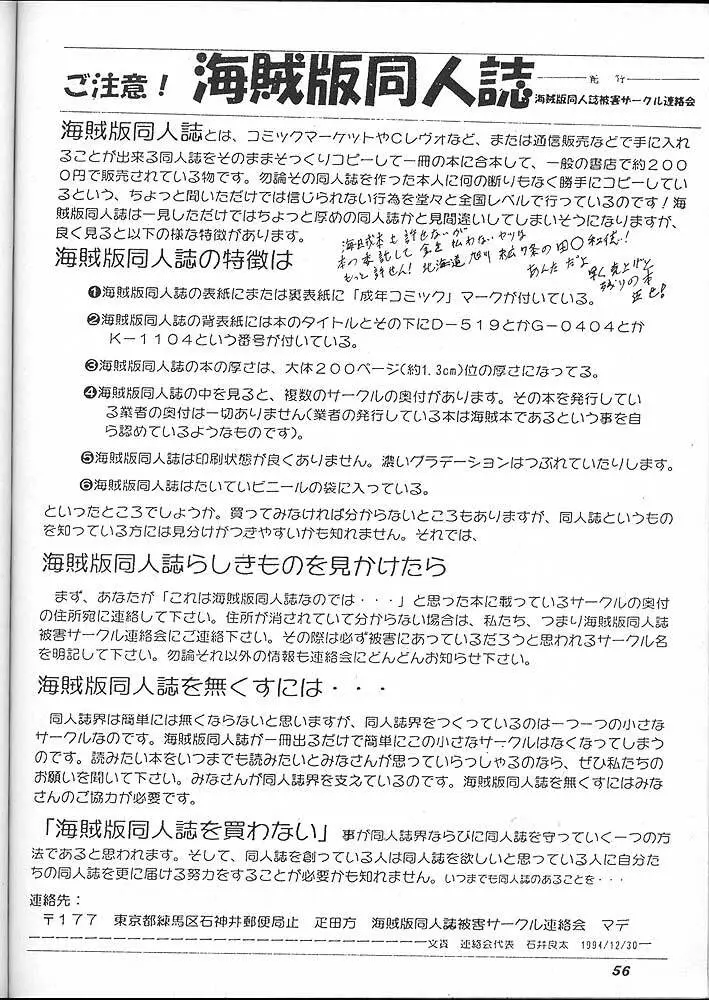 ご注意！ 海賊版同人誌
発行
海賊版同人誌被害サークル連絡会
海賊版同人誌とは、コミックマーケットやCレヴォなど、または通信販売などで手に入れ
ることが出来る同人誌をそのままそっくりコピーして一冊の本に合本して、一般の書店で約２００
０円で販売されている物です。勿論その同人誌を作った本人に何の断りもなく勝手にコピーしてい
るという、ちょっと聞いただけでは信じられない行為を堂々と全国レベルで行っているのです！海
賊版同人誌は一見しただけではちょっと厚めの同人誌かと見間違いしてしまいそうになりますが、
良く見ると以下の様な特徴があります。
海賊本も許せないが
本の委託して金を払わないヤツは
もっと許せん！北海道旭川
あんただよ
売上げと
残りの本
海賊版同人誌の特徴は
❶海賊版同人誌の表紙にまたは裏表紙に「成年コミック」マークが付いている。
❷海賊版同人誌の背表紙には本のタイトルとその下にＤ－５１９とかＧ－０４０４とか
Ｋ－１１０４という番号が付いている。
❸海賊版同人誌の本の厚さは、大体２００ページ(約1.3cm)位の厚さになってる。
❹海賊版同人誌の中を見ると、複数のサークルの奥付があります。その本を発行してい
る業者の奥付は一切ありません(業者の発行している本は海賊本であるという事を自
ら認めているようなものです)。
❺海賊版同人誌は印刷状態が良くありません。濃いグラデーションはつぶれていたりします。
❻海賊版同人誌はたいていビニールの袋に入っている。
といったところでしょうか。買ってみなければ分からないところもありますが、同人誌というもの
を知っている方には見分けがつきやすいかも知れません。それでは、
海賊版同人誌らしきものを見かけたら
まず、あなたが「これは海賊版同人誌なのでは・・・」と思った本に載っているサークルの奥付
の住所宛に連絡して下さい。住所が消されていて分からない場合は、私たち、つまり海賊版同人誌
被害サークル連絡会にご連絡下さい。その際は必ず被害にあっているだろうと思われるサークル名
を明記して下さい。勿論それ以外の情報も連絡会にどんどんお知らせ下さい。
海賊版同人誌を無くすには・・・
同人誌界は簡単には無くならないと思いますが、同人誌界をつくっているのは一つ一つの小さな
サークルなのです。海賊版同人誌が一冊出るだけで簡単にこの小さなサークルはなくなってしまう
のです。読みたい本をいつまでも読みたいとみなさんが思っていらっしゃるのなら、ぜひ私たちの
お願いを聞いて下さい。みなさんが同人誌界を支えているのです。海賊版同人誌を無くすにはみな
さんのご協力が必要です。
「海賊版同人誌を買わない」事が同人誌界ならびに同人誌を守っていく一つの方
法であると思われます。そして、同人誌を創っている人は同人誌を欲しいと思っている人に自分た
ちの同人誌を更に届ける努力をすることが必要かも知れません。いつまでも同人誌のあることを・・・
連絡先：
〒１７７ 東京都練馬区石神井郵便局止 疋田方 海賊版同人誌被害サークル連絡会 マデ
文責 連絡会代表 石井良太 1994/12/30
56